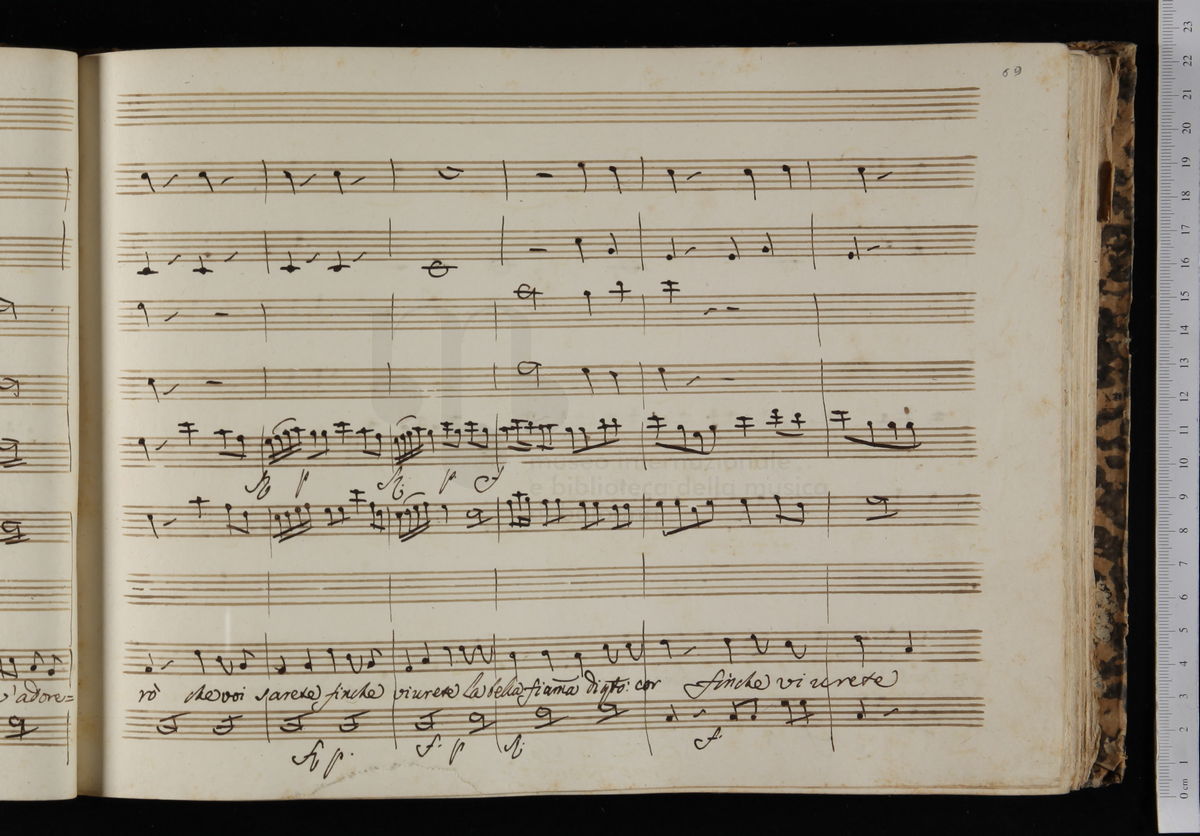 69
museo internazionale
e biblioteca della musica
p
p
v'adore=
rò che voi sarete finche viurete la bella fiama di qto: cor finche viurete
p.
f. p
f.
23
22
21
20
19
18
17
16
15
14
13
12
11
10
9
8
7
6
5
4
3
2
1
0 cm